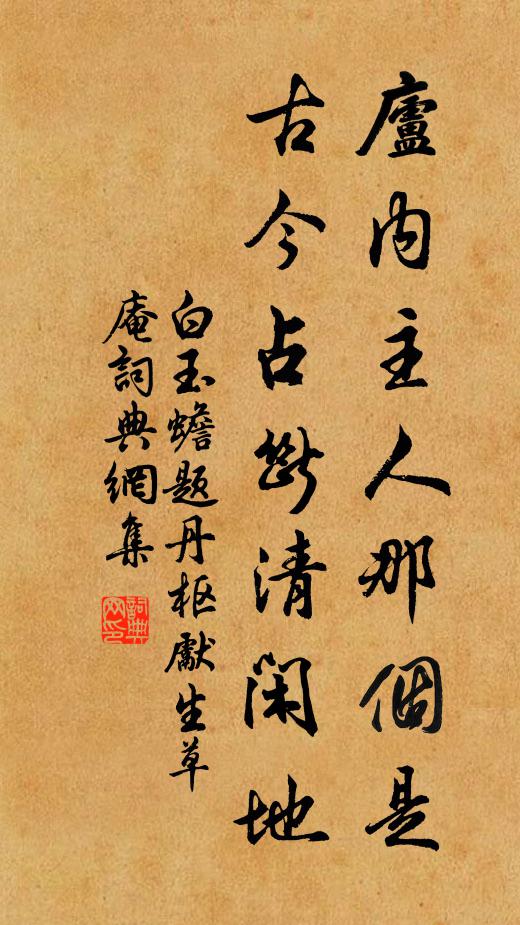 廬内主人那個是
古今占斷清閑地
白玉蟾題丹樞獻生草
庵詞典網集
詞典網印